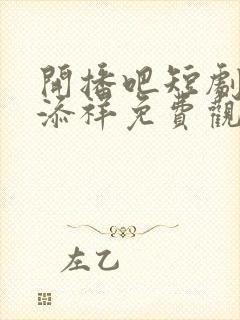 開播吧短劇
添祥免費觀
左乙